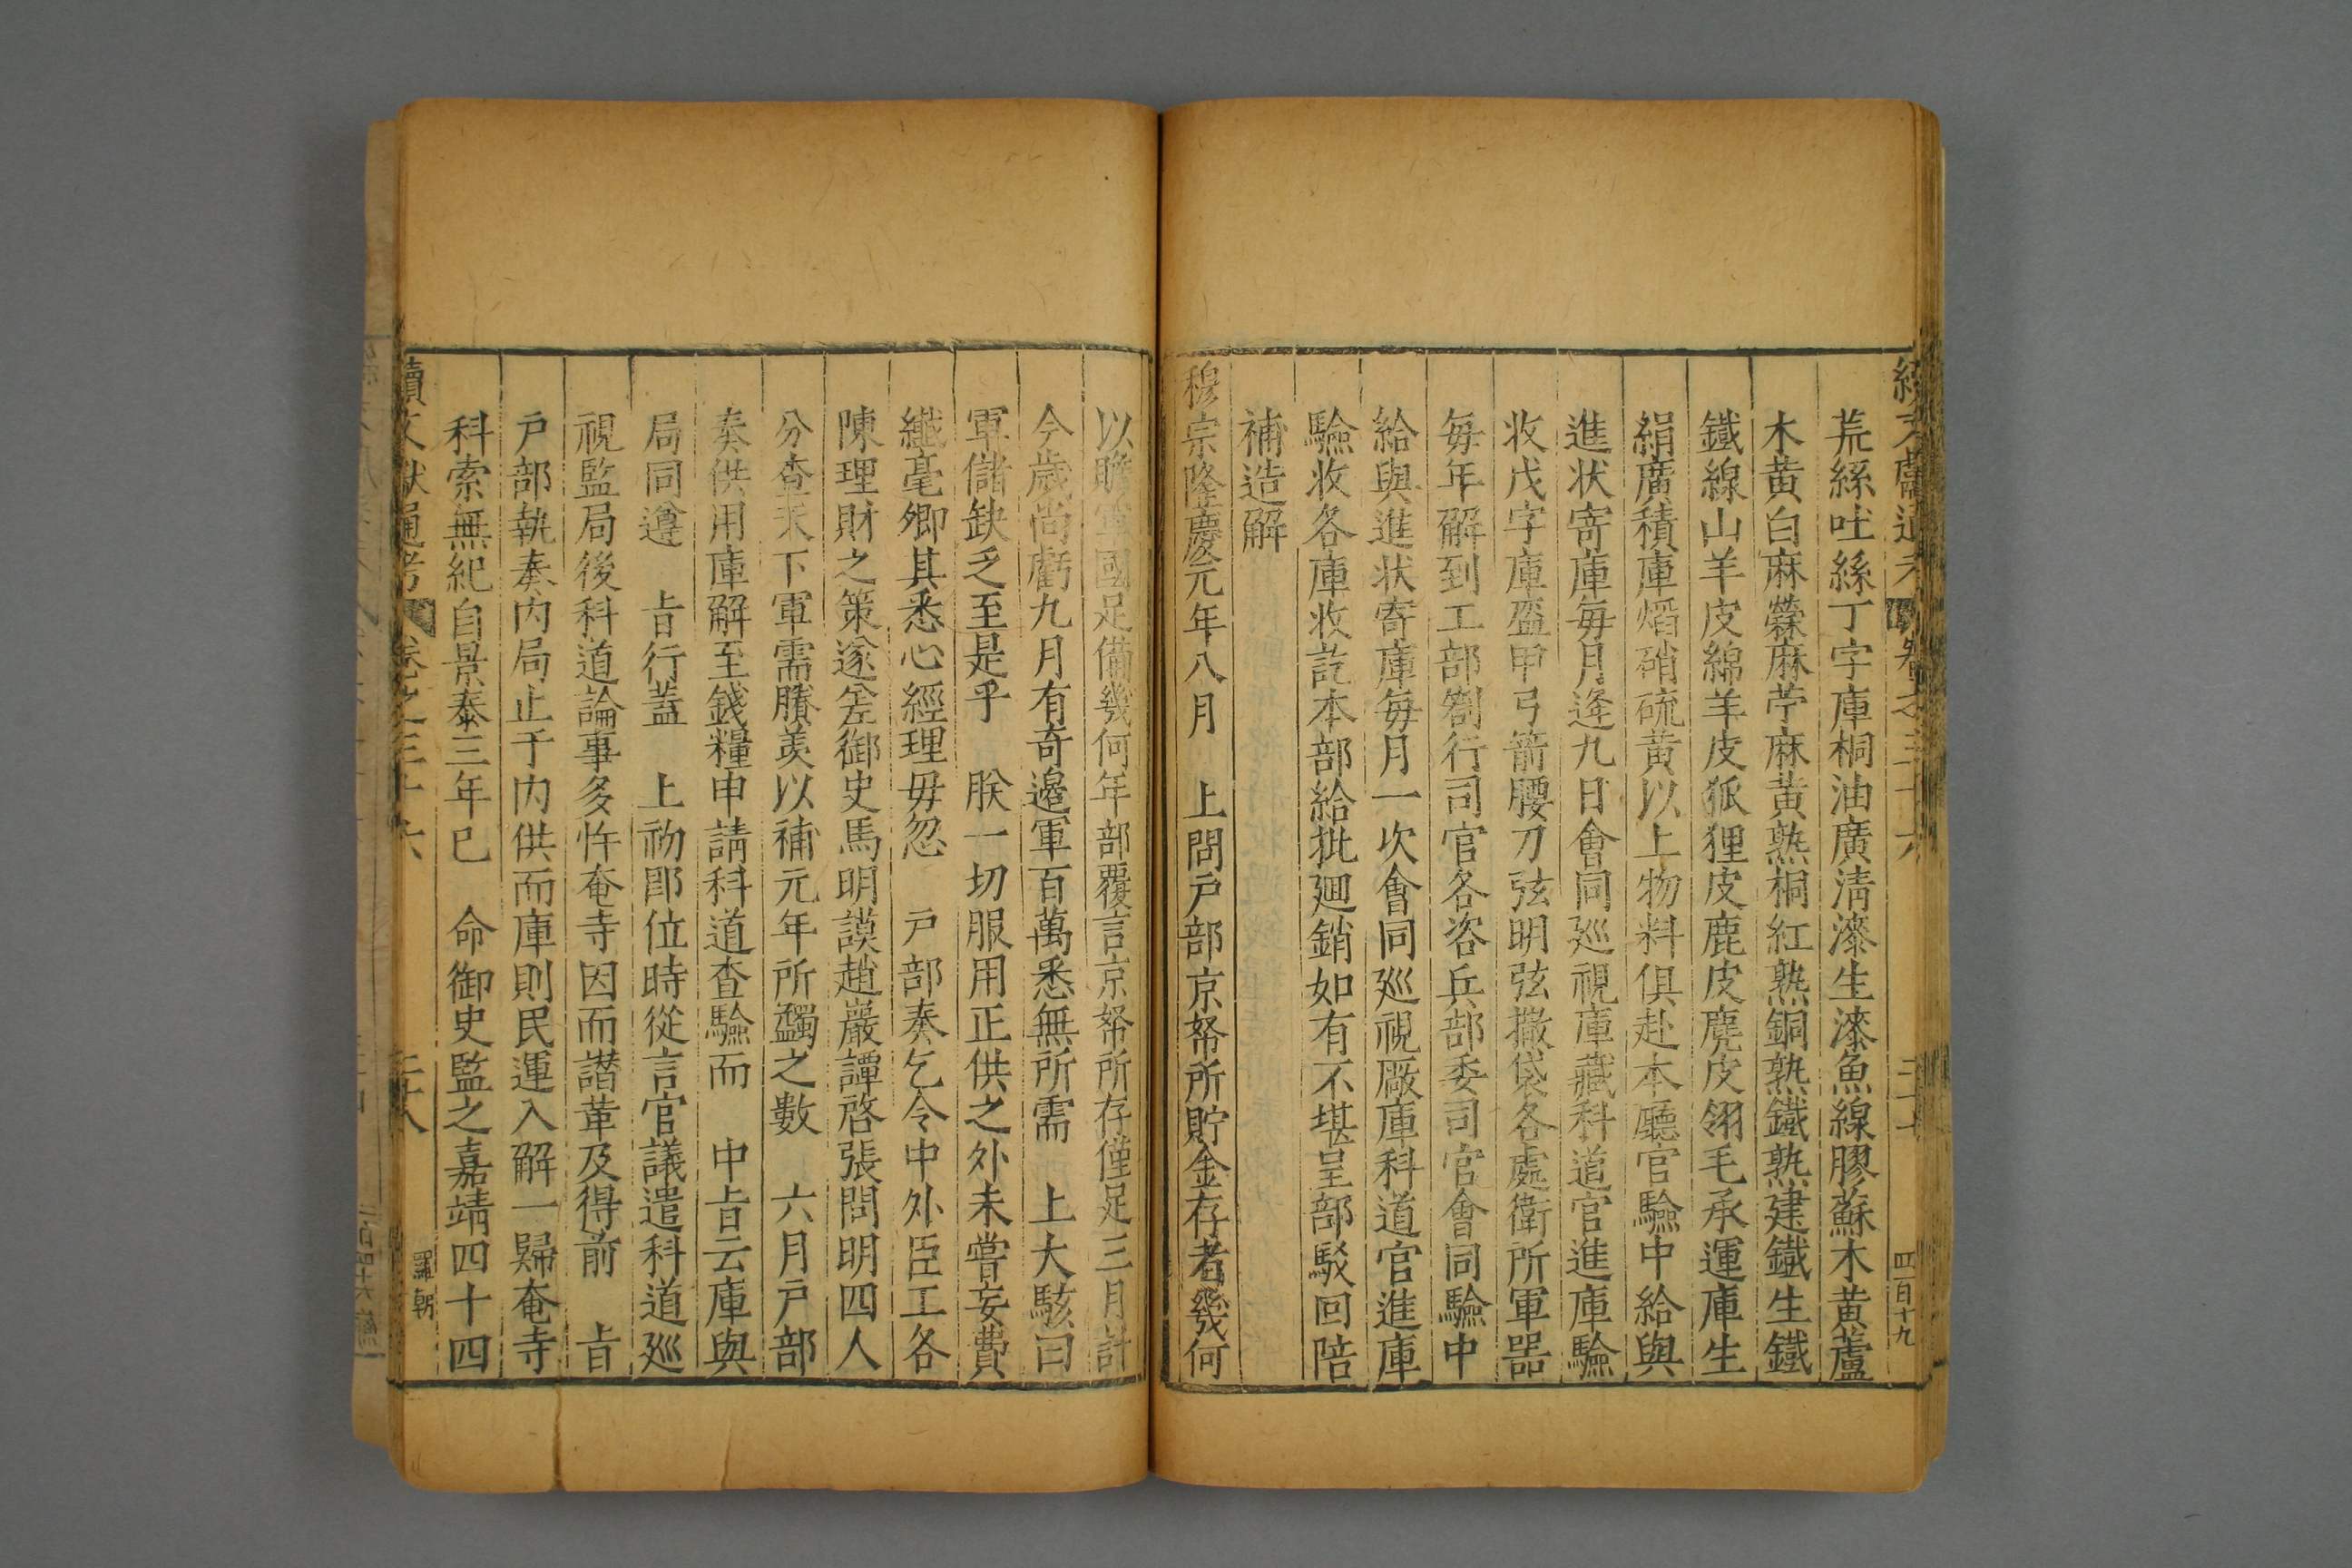 荒絲吐絲丁字庫桐油廣清漆生漆魚線膠蘇木黃蘆
木黃白麻檾麻苧麻黃熟桐紅熟銅熟鐵熟建鐵生鐵
鐵線山羊皮綿羊皮狐狸皮鹿皮麂皮翎毛承運庫生
絹廣積庫熖硝硫黃以上物料俱赴本廳官驗中給與
進状寄庫毎月逢九日會同廵視庫藏科道官進庫驗
收戊字庫盔甲弓箭腰刀弦明弦撒袋各處衛所軍器
毎年解到工部劄行司官各咨兵部委司官會同驗中
給與進状寄庫毎月一次會同廵視厰庫科道官進庫
驗收各庫收訖本部給批廻銷如有不堪呈部駁回陪
補造解
穆宗隆慶元年八月　上問戸部京帑所貯金存者幾何
以贍軍國足備幾何年部覆言京帑所存僅足三月計
今歲尚虧九月有奇邊軍百萬悉無所需　上大駭曰
軍儲缺乏至是乎　朕一切服用正供之外未嘗妄費
纖毫卿其悉心經理毋忽　戸部奏乞令中外臣工各
陳理財之策遂差御史馬明謨趙巖譚啓張問明四人
分查未下軍需賸羨以補元年所蠲之數　六月戸部
奏供用庫解至錢糧申請科道查驗而　中㫖云庫與
局同遵　㫖行蓋　上初即位時從言官議遣科道廵
視監局後科道論事多忤奄寺因而譖革及得前　㫖
戸部執奏內局止于內供而庫則民運入解一歸奄寺
科索無紀自景泰三年已　命御史監之嘉靖四十四
續文獻通考　卷之三十六　二十八　羅朝